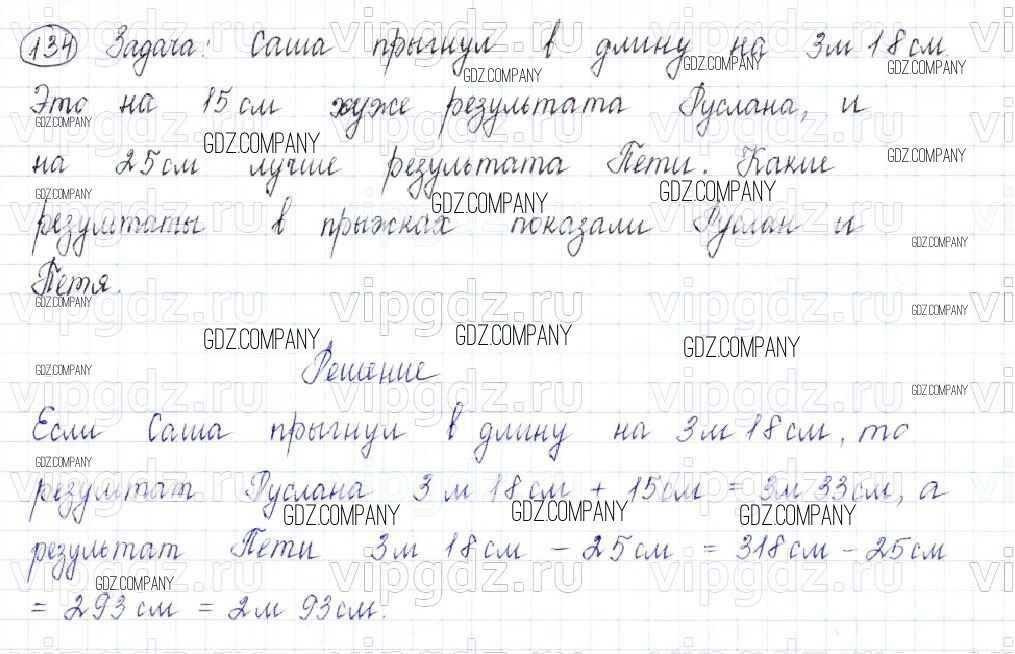 134 Задача: Саша прыгнул в длину на 3м 18см.
Это на 15см хуже результата Руслана, и
на 25см лучше результата Пети. Какие
результаты в прыжках показали Руслан и
Петя.
Решение
Если Саша прыгнул в длину на 3м 18см, то
результат Руслана 3м 18см + 15см = 3м 33см, а
результат Пети 3м 18см - 25см = 318см - 25см
= 293см = 2м 93см.
GDZ.COMPANY
vipgdz.ru